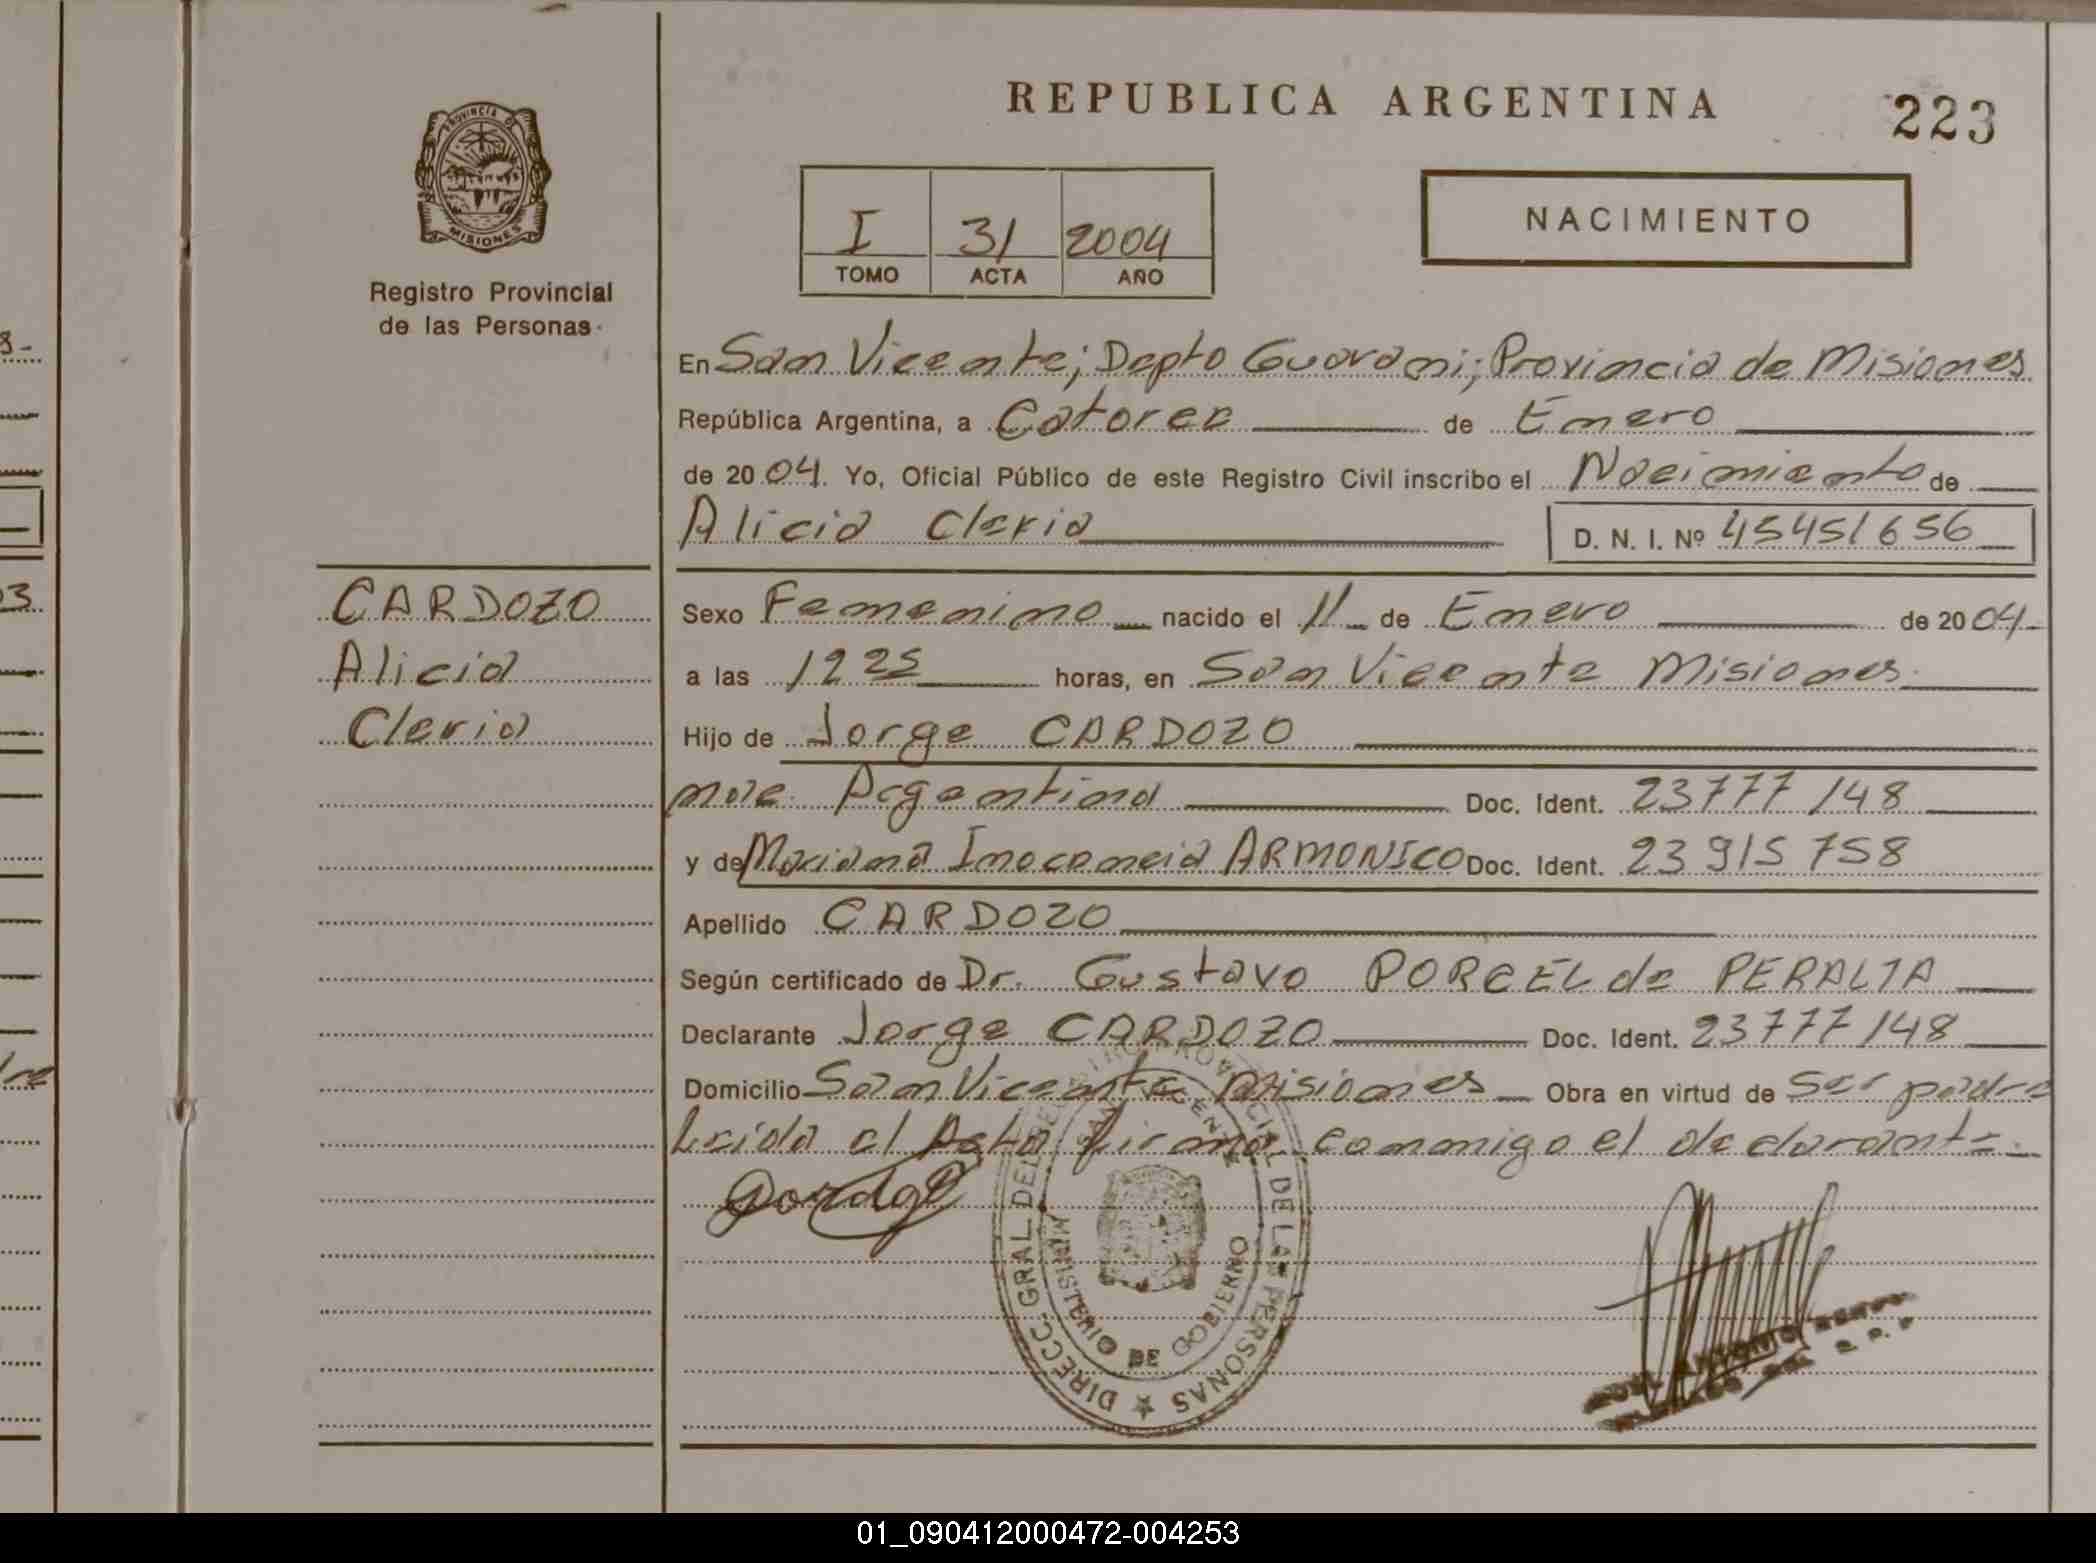 REPUBLICA ARGENTINA
223
PROVINCIA DE
MISIONES
Registro Provincial
de las Personas
I 31 2004
TOMO ACTA AÑO
NACIMIENTO
En San Vicente; Depto Guarani; Provincia de Misiones
República Argentina, a Catorce de Enero
de 2004. Yo, Oficial Público de este Registro Civil inscribo el Nacimiento de
Alicia Cleria D. N. I. Nº 45451656
CARDOZO
Alicia
Cleria
Sexo Femenino nacido el 11 de Enero de 2004
a las 12 25 horas, en San Vicente Misiones
Hijo de Jorge CARDOZO
Argentina Doc. Ident. 23777148
y de Mariana Inocencia ARMONICO Doc. Ident. 23 915 758
Apellido CARDOZO
Según certificado de Dr. Gustavo PORCEL de PERALTA
Declarante Jorge CARDOZO Doc. Ident. 23777148
Domicilio San Vicente Misiones Obra en virtud de Ser padre
Leida el Acta firma conmigo el declarante
DIRECC. GRAL. DEL REGISTRO PROVINCIAL DE LAS PERSONAS
MINISTERIO DE GOBIERNO
ANTONIO
01_090412000472-004253